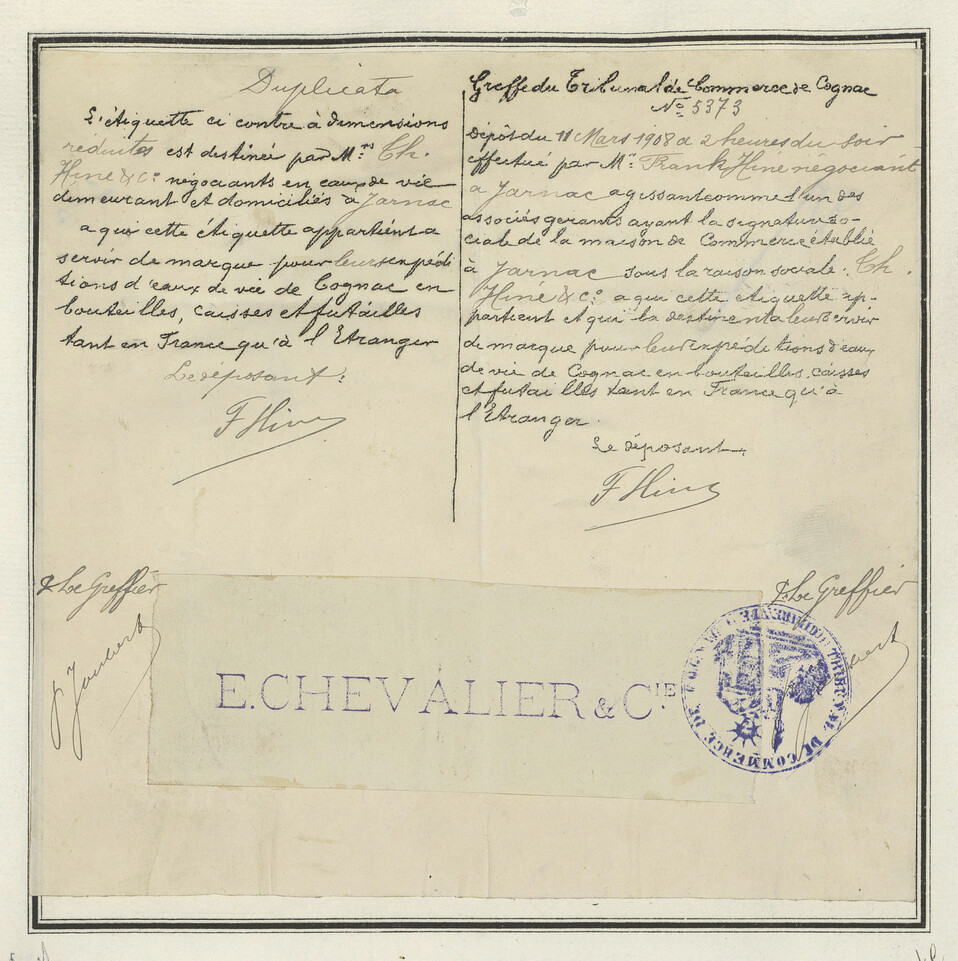 Duplicata
L'étiquette ci contre à dimensions
réduites est destinée par Mrs Th.
Hine & Co négociants en eaux de vie
demeurant et domiciliés à Jarnac
a qui cette étiquette appartient a
servir de marque pour leurs expédi
tions d'eaux de vie de Cognac en
bouteilles, caisses et futailles
tant en France qu'à l'Etranger
Le déposant:
F Hine
Greffe du Tribunal de Commerce de Cognac
No 5373
Dépôt du 11 Mars 1908 a 2 heures du soir
effectué par Mr. Frank Hine négociant
a Jarnac agissant comme l'un des
associés gerants ayant la signature so-
ciale de la maison de Commerce établie
à Jarnac sous la raison sociale. Th.
Hine & Co. a qui cette étiquette ap-
partient et qui la destinent a leur servir
de marque pour leur expéditions d'eaux
de vie de Cognac en bouteilles. caisses
et futailles tant en France qu'à
l'Etranger.
Le déposant.
F Hine
Le Greffier
Joubert
Le Greffier
E. CHEVALIER & CIE
TRIBUNAL DE COMMERCE DE COGNAC